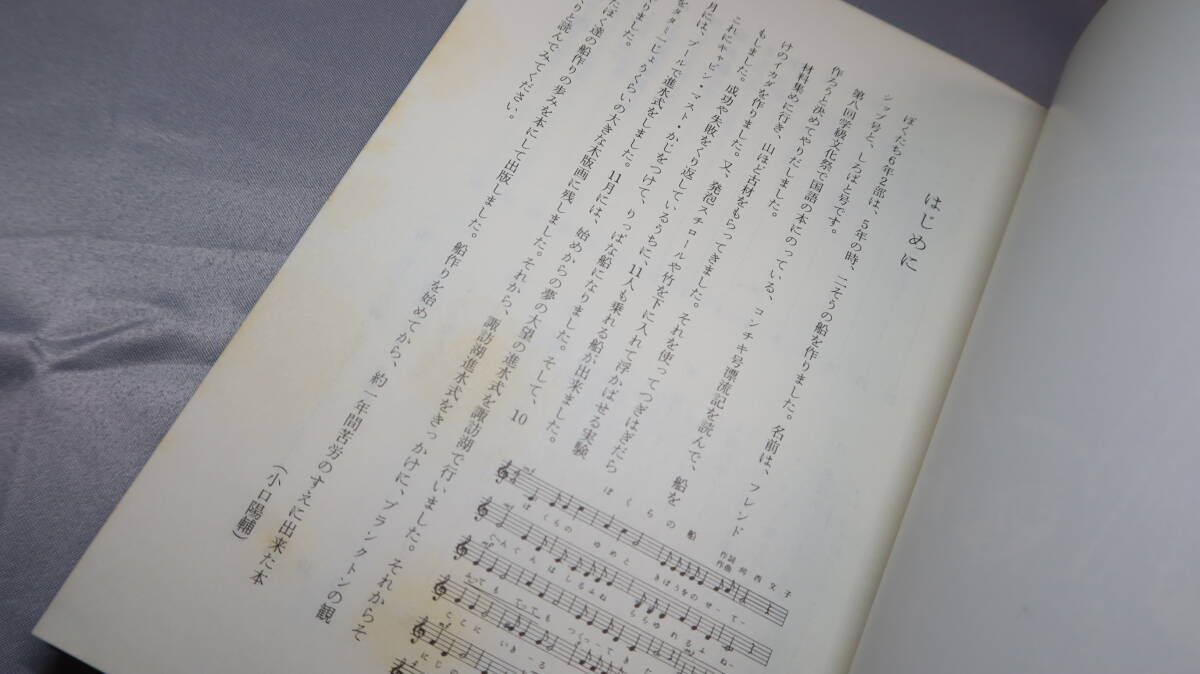 はじめに
ぼくたち6年2部は、5年の時、二そうの船を作りました。名前は、フレンド
シップ号と、しろばと号です。
第八回学級文化祭で国語の本にのっている、コンチキ号漂流記を読んで、船を
作ろうと決めてやりだしました。
材料集めに行き、山ほど古材をもらってきました。それを使ってつぎはぎだら
けのイカダを作りました。又、発泡スチロールや竹を下に入れて浮かばせる実験
もしました。成功や失敗をくり返しているうちに、11人も乗れる船が出来ました。
これにキャビン・マスト・かじをつけて、りっぱな船になりました。そして、10
月には、プールで進水式をしました。11月には、始めからの夢の大望の進水式を諏訪湖で行いました。それからそ
じょうくらいの大きな木版画に残しました。それから、諏訪湖進水式をきっかけに、プランクトンの観
りました。
たぼく達の船作りの歩みを本にして出版しました。船作りを始めてから、約一年間苦労のすえに出来た本
りと読んでみてください。
（小口陽輔）
ぼくらの船
ぼくらの ゆめと きぼうをのせーてー